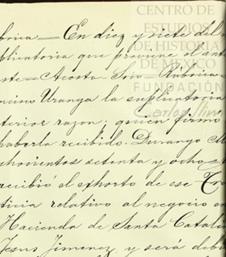 CENTRO DE
ESTUDIOS
DE HISTORIA
DE MÉXICO
FUNDACIÓN
carlos slim
En diez y siete del
plicatoria que previene el ante
Acosta
Uranga la suplicatoria
terior razon; quien firmó
haberla recibido. Durango
chocientos setenta y ocho
ecibió el exhorto de ese
ticia relativo al negocio
Hacienda de Santa Catal
Jesus Jimenez y será